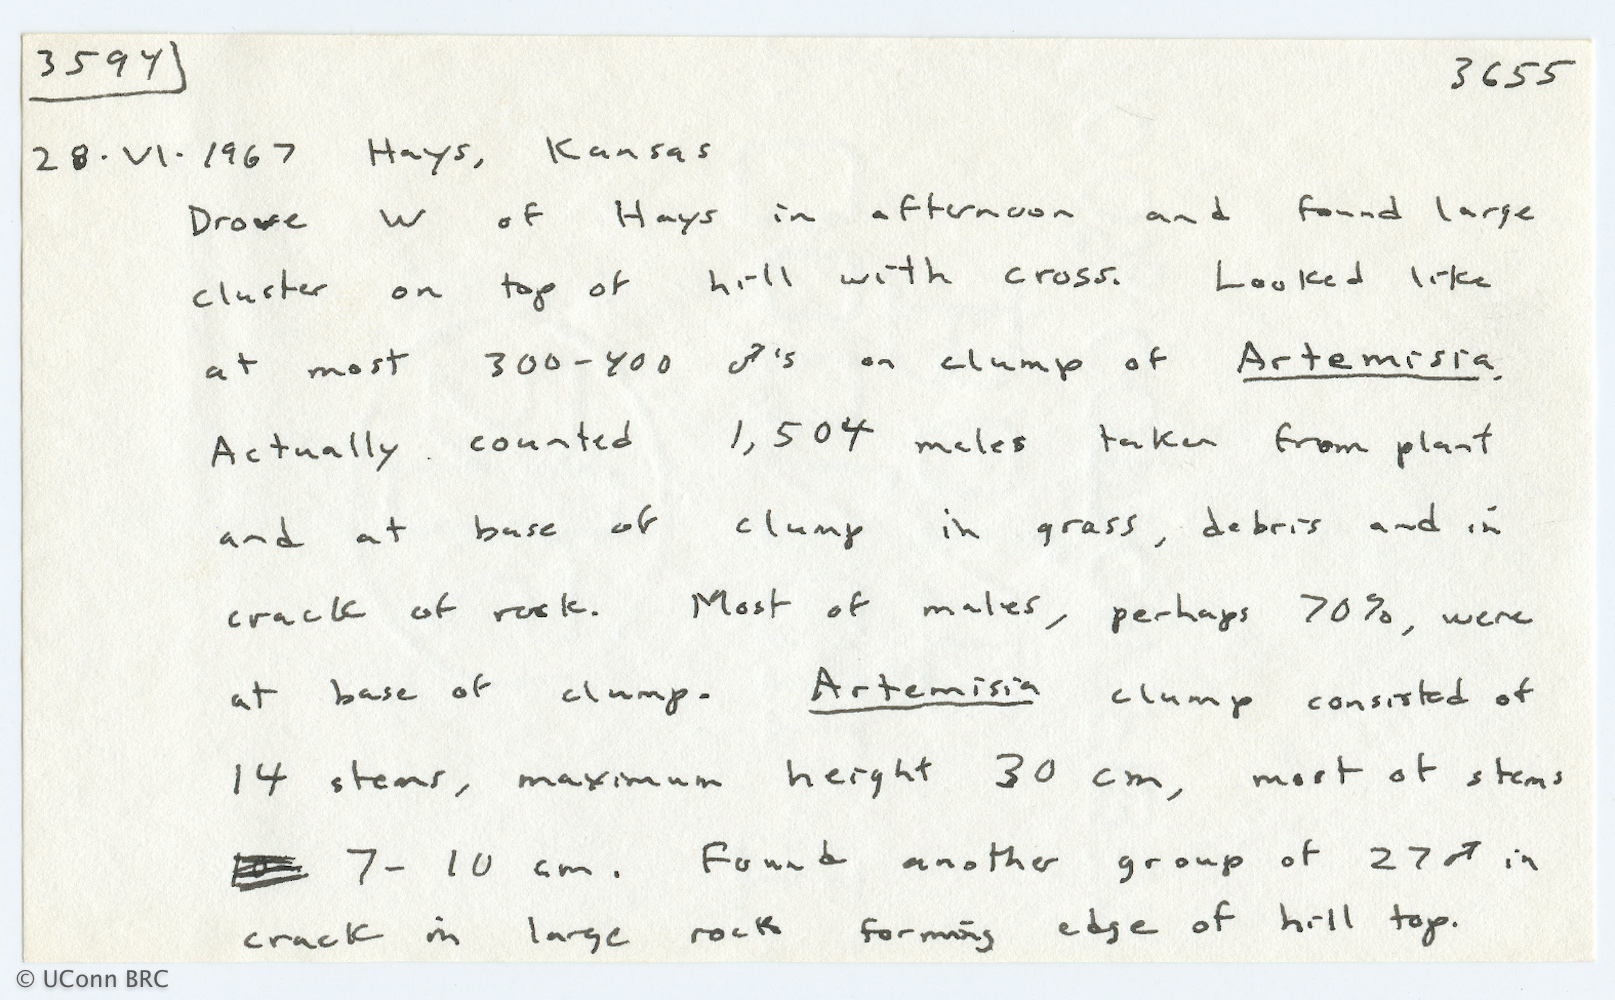 3594
3655
28·VI·1967 Hays, Kansas
Drove W of Hays in afternoon and found large
cluster on top of hill with cross. Looked like
at most 300-400 ♂'s on clump of Artemisia.
Actually counted 1,504 males taken from plant
and at base of clump in grass, debris and in
crack of rock. Most of males, perhaps 70%, were
at base of clump. Artemisia clump consisted of
14 stems, maximum height 30 cm, most of stems
7-10 cm. Found another group of 27♂ in
crack in large rock forming edge of hill top.
© UConn BRC